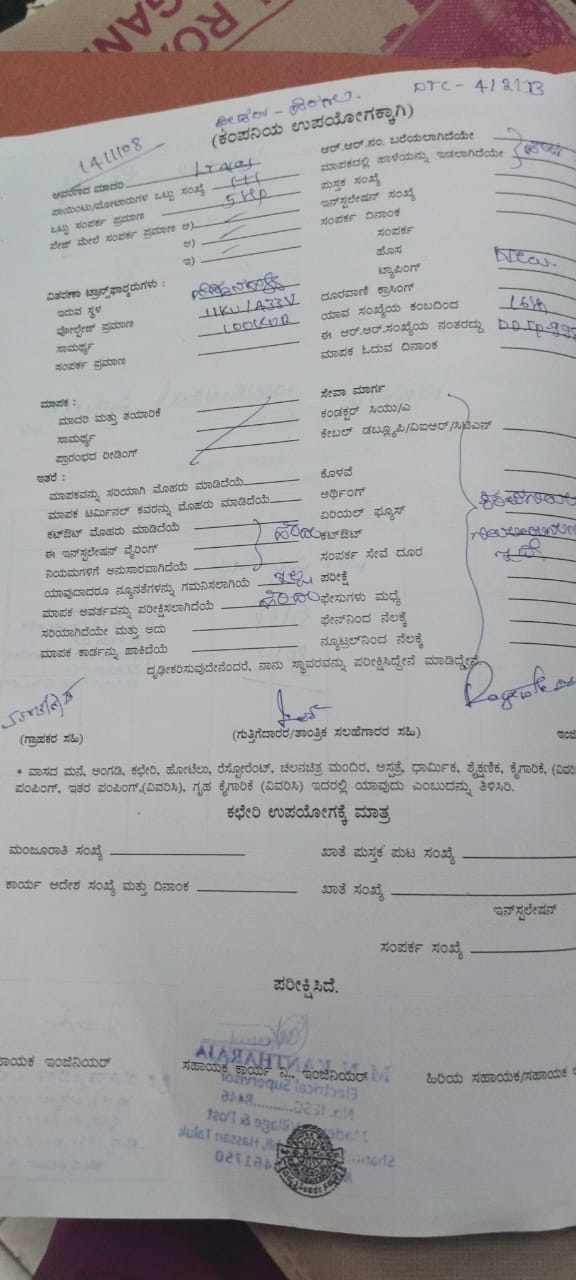 DTC - 4/2113
(ಕಂಪನಿಯ ಉಪಯೋಗಕ್ಕಾಗಿ)
141108
ಆರ್.ಆರ್.ನಂ. ಬರೆಯಲಾಗಿದೆಯೇ
ಆವರಣದ ಮಾದರಿ
ಮಾಪಕದಲ್ಲಿ ಹಾಳೆಯನ್ನು ಇಡಲಾಗಿದೆಯೇ
ಪಾಯಿಂಟು/ಮೋಟಾರುಗಳ ಒಟ್ಟು ಸಂಖ್ಯೆ
ಪುಸ್ತಕ ಸಂಖ್ಯೆ
ಒಟ್ಟು ಸಂಪರ್ಕ ಪ್ರಮಾಣ 5HP
ಇನ್‌ಸ್ಟಲೇಷನ್ ಸಂಖ್ಯೆ
ಪೇಜ್ ಮೇಲೆ ಸಂಪರ್ಕ ಪ್ರಮಾಣ ಅ)
ಸಂಪರ್ಕ ದಿನಾಂಕ
ಆ)
ಸಂಪರ್ಕ
ಇ)
ಹೊಸ New.
ಟ್ಯಾಪಿಂಗ್
ವಿತರಣಾ ಟ್ರಾನ್ಸ್‌ಫಾರ್ಮರುಗಳು :
ದೂರವಾಣಿ ಕ್ರಾಸಿಂಗ್
ಇರುವ ಸ್ಥಳ
ಯಾವ ಸಂಖ್ಯೆಯ ಕಂಬದಿಂದ
ವೋಲ್ಟೇಜ್ ಪ್ರಮಾಣ 11KV/433V
ಈ ಆರ್.ಆರ್.ಸಂಖ್ಯೆಯ ನಂತರದ್ದು
ಸಾಮರ್ಥ್ಯ 100KVA
ಮಾಪಕ ಓದುವ ದಿನಾಂಕ
ಸಂಪರ್ಕ ಪ್ರಮಾಣ
ಮಾಪಕ :
ಸೇವಾ ಮಾರ್ಗ
ಮಾದರಿ ಮತ್ತು ತಯಾರಿಕೆ
ಕಂಡಕ್ಟರ್ ಸಿಯು/ಎ
ಸಾಮರ್ಥ್ಯ
ಕೇಬಲ್ ಡಬ್ಲ್ಯೂಪಿ/ವಿಐಆರ್/ಸಿಟಿಎನ್
ಪ್ರಾರಂಭದ ರೀಡಿಂಗ್
ಇತರೆ :
ಕೊಳವೆ
ಮಾಪಕವನ್ನು ಸರಿಯಾಗಿ ಮೊಹರು ಮಾಡಿದೆಯೆ
ಆರ್ಥಿಂಗ್
ಮಾಪಕ ಟರ್ಮಿನಲ್ ಕವರನ್ನು ಮೊಹರು ಮಾಡಿದೆಯೆ
ಏರಿಯಲ್ ಫ್ಯೂಸ್
ಕಟ್‌ಔಟ್ ಮೊಹರು ಮಾಡಿದೆಯೆ
ಕಟ್‌ಔಟ್
ಈ ಇನ್‌ಸ್ಟಲೇಷನ್ ವೈರಿಂಗ್
ಸಂಪರ್ಕ ಸೇವೆ ದೂರ
ನಿಯಮಗಳಿಗೆ ಅನುಸಾರವಾಗಿದೆಯೆ
ಪರೀಕ್ಷೆ
ಯಾವುದಾದರೂ ನ್ಯೂನತೆಗಳನ್ನು ಗಮನಿಸಲಾಗಿಯೆ ಇಲ್ಲ
ಫೇಸುಗಳು ಮಧ್ಯೆ
ಮಾಪಕ ಆವರ್ತವನ್ನು ಪರೀಕ್ಷಿಸಲಾಗಿದೆಯೆ ಹೌದು
ಫೇನ್‌ನಿಂದ ನೆಲಕ್ಕೆ
ಸರಿಯಾಗಿದೆಯೇ ಮತ್ತು ಅದು
ನ್ಯೂಟ್ರಲ್‌ನಿಂದ ನೆಲಕ್ಕೆ
ಮಾಪಕ ಕಾರ್ಡನ್ನು ಹಾಕಿದೆಯೆ
ದೃಢೀಕರಿಸುವುದೇನೆಂದರೆ, ನಾನು ಸ್ಥಾವರವನ್ನು ಪರೀಕ್ಷಿಸಿದ್ದೇನೆ ಮಾಡಿದ್ದೇನೆ.
(ಗ್ರಾಹಕರ ಸಹಿ)
(ಗುತ್ತಿಗೆದಾರರ/ತಾಂತ್ರಿಕ ಸಲಹೆಗಾರರ ಸಹಿ)
* ವಾಸದ ಮನೆ, ಅಂಗಡಿ, ಕಛೇರಿ, ಹೋಟೆಲು, ರೆಸ್ಟೋರೆಂಟ್, ಚಲನಚಿತ್ರ ಮಂದಿರ, ಅಸ್ಪತ್ರೆ, ಧಾರ್ಮಿಕ, ಶೈಕ್ಷಣಿಕ, ಕೈಗಾರಿಕೆ,
ಪಂಪಿಂಗ್, ಇತರ ಪಂಪಿಂಗ್,(ವಿವರಿಸಿ), ಗೃಹ ಕೈಗಾರಿಕೆ (ವಿವರಿಸಿ) ಇದರಲ್ಲಿ ಯಾವುದು ಎಂಬುದನ್ನು ತಿಳಿಸಿರಿ.
ಕಛೇರಿ ಉಪಯೋಗಕ್ಕೆ ಮಾತ್ರ
ಮಂಜೂರಾತಿ ಸಂಖ್ಯೆ
ಖಾತೆ ಪುಸ್ತಕ ಪುಟ ಸಂಖ್ಯೆ
ಕಾರ್ಯ ಆದೇಶ ಸಂಖ್ಯೆ ಮತ್ತು ದಿನಾಂಕ
ಖಾತೆ ಸಂಖ್ಯೆ
ಇನ್‌ಸ್ಟಲೇಷನ್
ಸಂಪರ್ಕ ಸಂಖ್ಯೆ
ಪರೀಕ್ಷಿಸಿದೆ.
ಇಂಜಿನಿಯರ್
ಸಹಾಯಕ ಕಾರ್ಯ ನಿ., ಇಂಜಿನಿಯರ್
ಹಿರಿಯ ಸಹಾಯಕ/ಸಹಾಯಕ
M.N. KANTHARAJA
Electrical Supervisor
No. IESC..........8446
Village & Post
Hassan Taluk